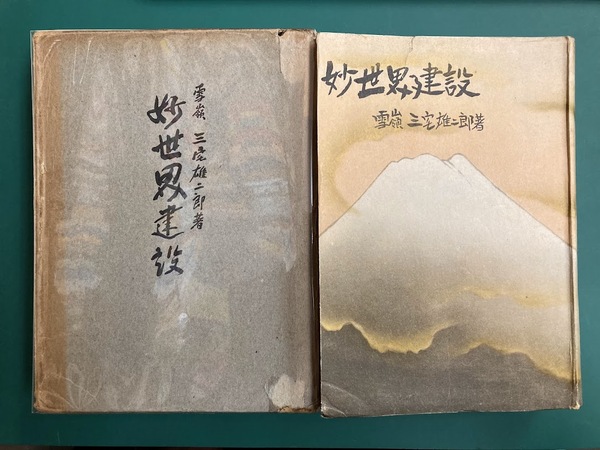 妙世界建設
雪嶺 三宅雄二郎著
妙世界建設
雪嶺 三宅雄二郎著